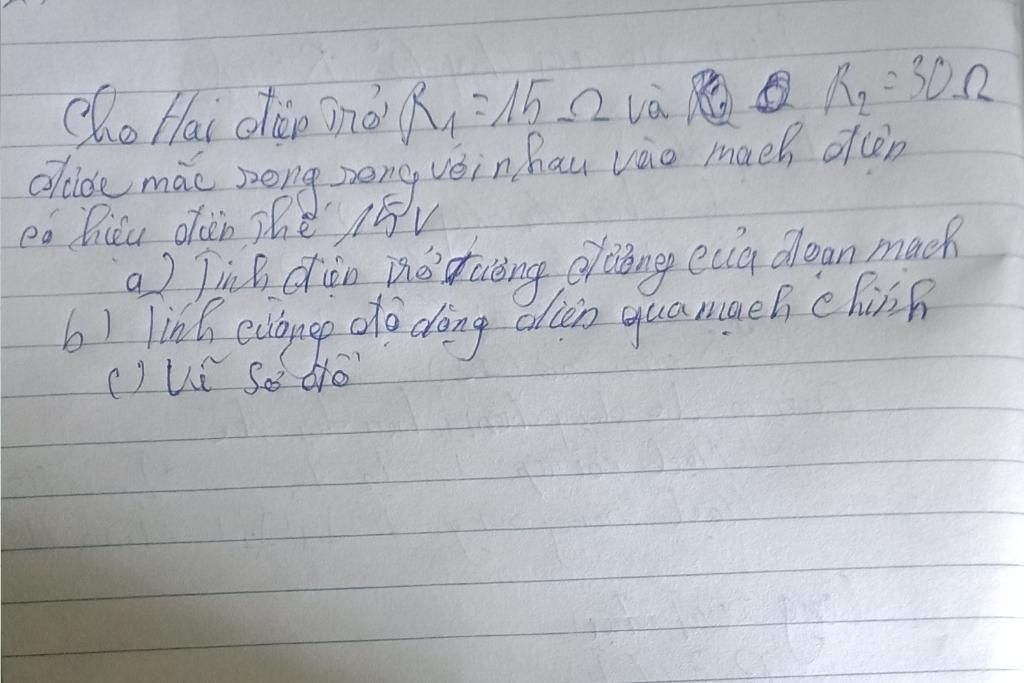 Cho Hai điện trở R₁ = 15 Ω và R₂ = 30 Ω
được mắc song song với nhau vào mạch điện
có hiệu điện thế 15V
a) Tính điện trở tương đương của đoạn mạch
b) Tính cường độ dòng điện qua mạch chính
c) Vẽ sơ đồ